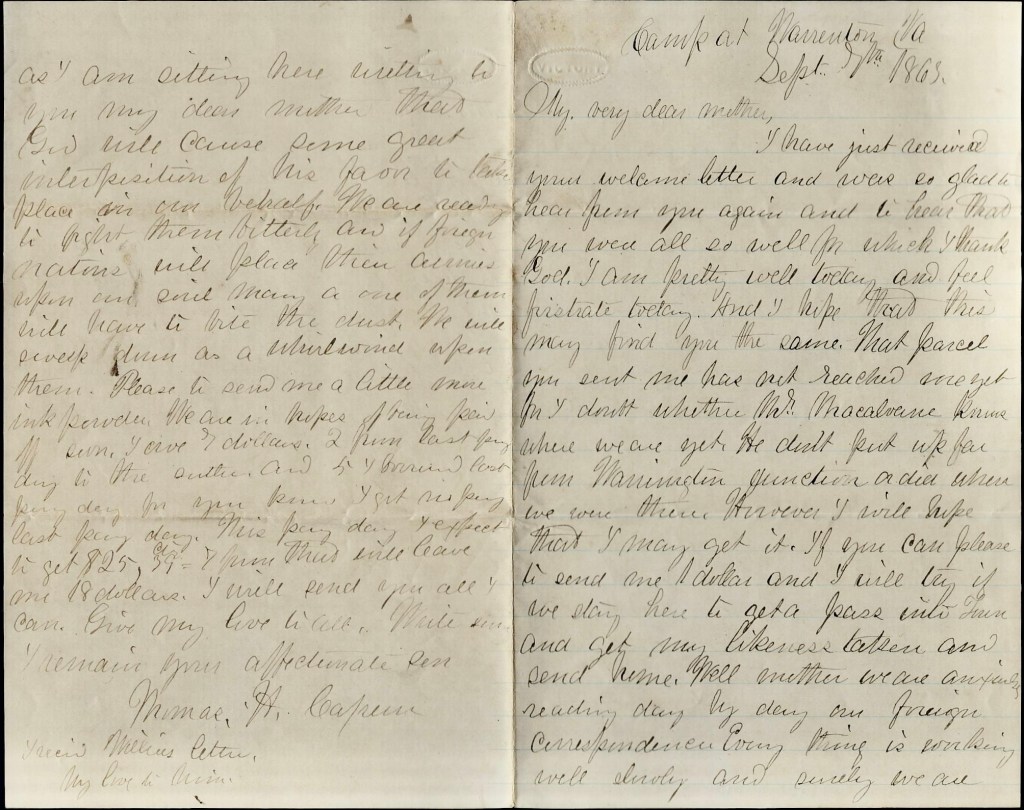 Camp at Warrenton Va
Sept. 1863.
My. very dear mother,
I have just received
your welcome letter and was so glad to
hear from you again and to hear that
you were all so well for which I thank
God. I am pretty well today and feel
firstrate today. And I hope that this
may find you the same. That parcel
you sent me has not reached me yet
for I doubt whether Mr. Macalvane knows
where we are yet. He don't put up far
from Warrington Junction or did when
we were there. However I will hope
that I may get it. If you can please
to send me 1 dollar and I will try if
we stay here to get a pass into Town
and get my likeness taken and
send home. Well mother we are anxiously
reading day by day our foreign
correspondence Every thing is working
well slowly and surely we are
as I am sitting here writing to
you my dear mother that
God will cause some great
interposition of his favor to take
place in our behalf. We are ready
to fight them bitterly and if foreign
nations will place their armies
upon our soil many a one of them
will have to bite the dust. We will
sweep down as a whirlwind upon
them. Please to send me a little more
ink powder. We are in hopes of being paid
off soon. I owe 7 dollars. 2 from last pay
day to the sutler and 5 I borrowed last
pay day for you know I got no pay
last pay day. This pay day I expect
to get $25, 7 from that will leave
me 18 dollars. I will send you all I
can. Give my love to all. Write soon
I remain your affectionate son
Thomas. H. Capern
I recd Willies letter.
My love to him.